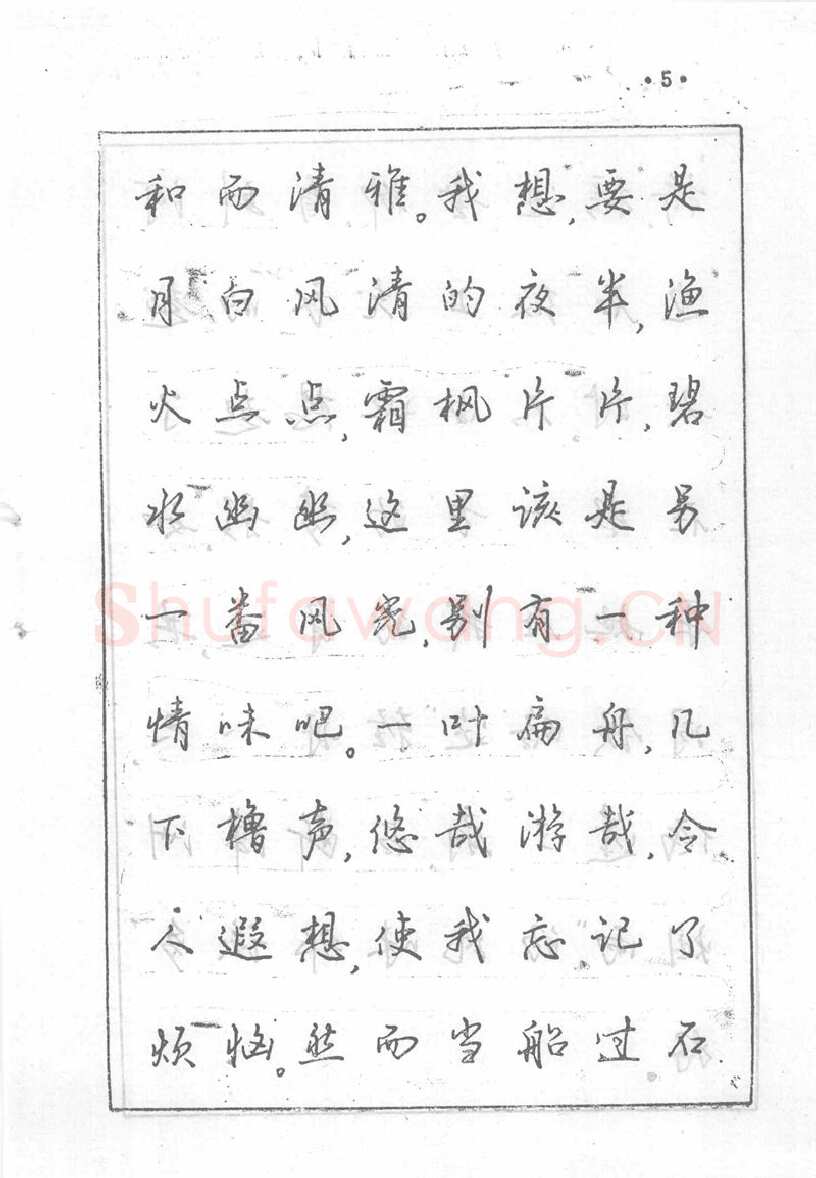 ·5·
和而清雅。我想,要是
月白风清的夜半,渔
火点点,霜枫片片,碧
水幽幽,这里该是另
一番风光,别有一种
情味吧。一叶扁舟,几
下橹声,悠哉游哉,令
人遐想,使我忘记了
烦恼。然而当船过石
Shufawang.CN